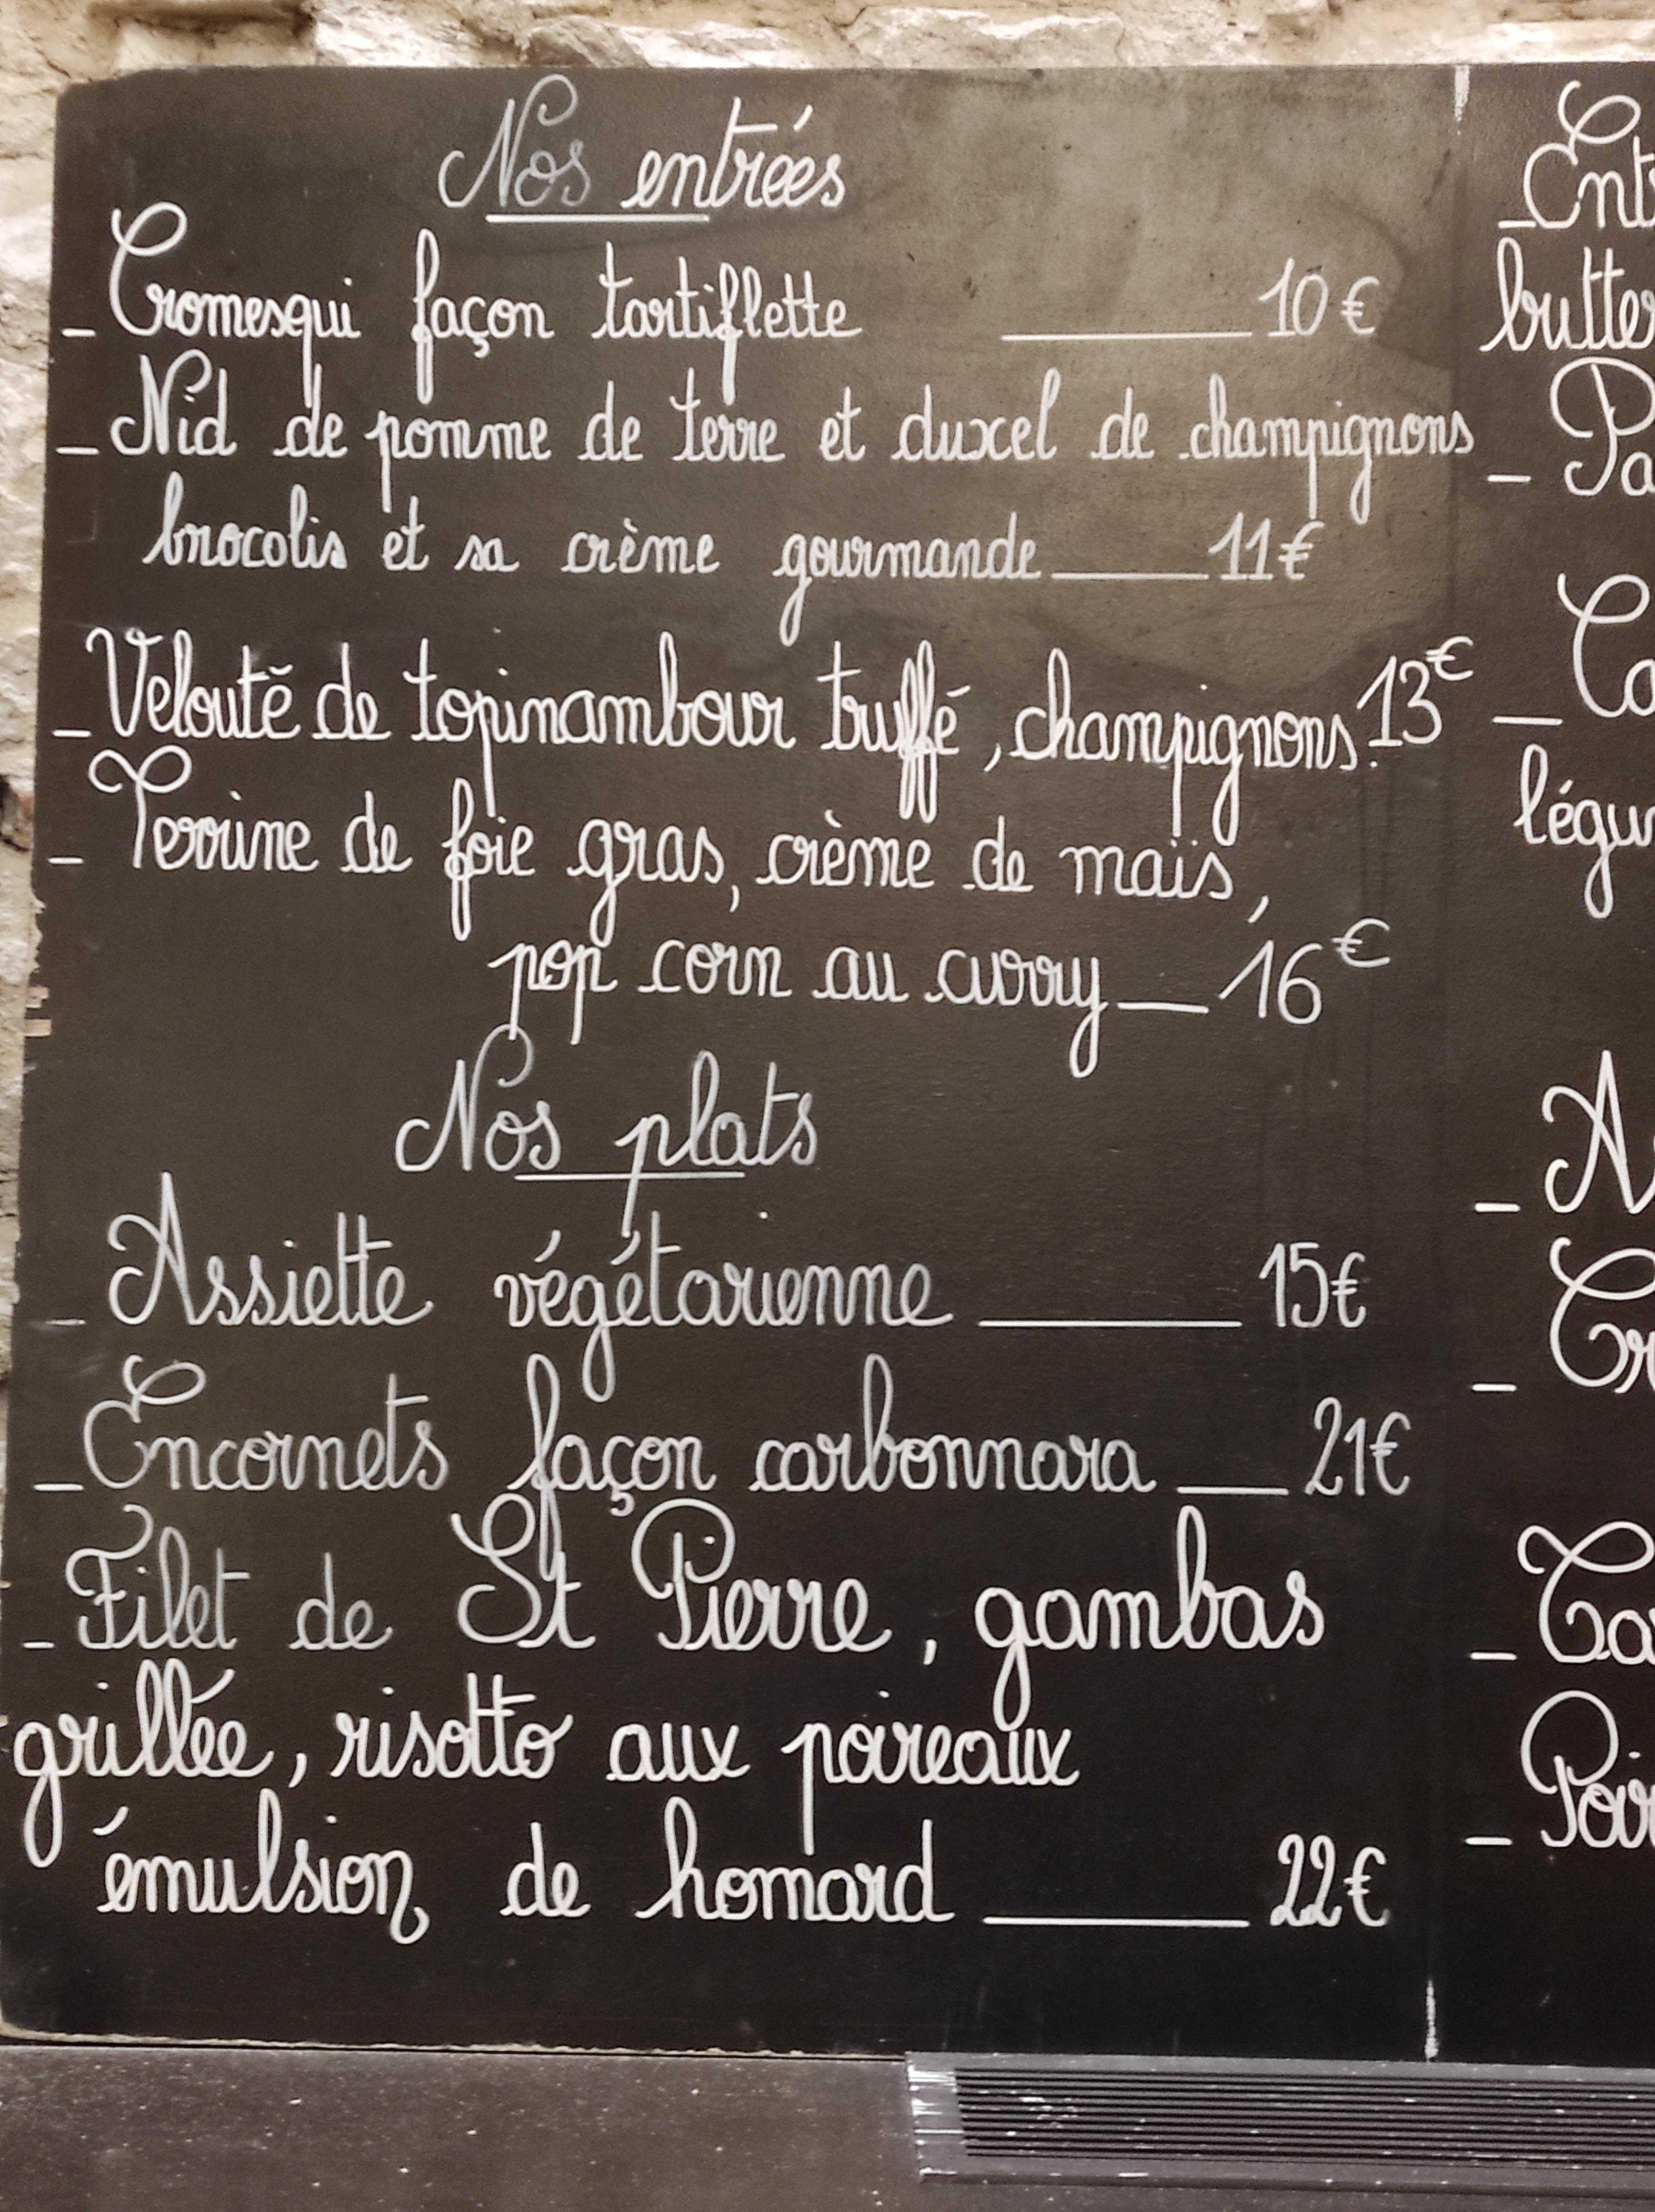 Nos entrées
- Cromesqui façon tartiflette ______ 10€
- Nid de pomme de terre et duxcel de champignons
brocolis et sa crème gourmande ____ 11€
- Velouté de topinambour truffé, champignons. 13€
- Terrine de foie gras, crème de maïs,
pop corn au curry __ 16€
Nos plats
- Assiette végétarienne ______ 15€
- Encornets façon carbonnara ___ 21€
- Filet de St Pierre, gambas
grillée, risotto aux poireaux
émulsion de homard ______ 22€